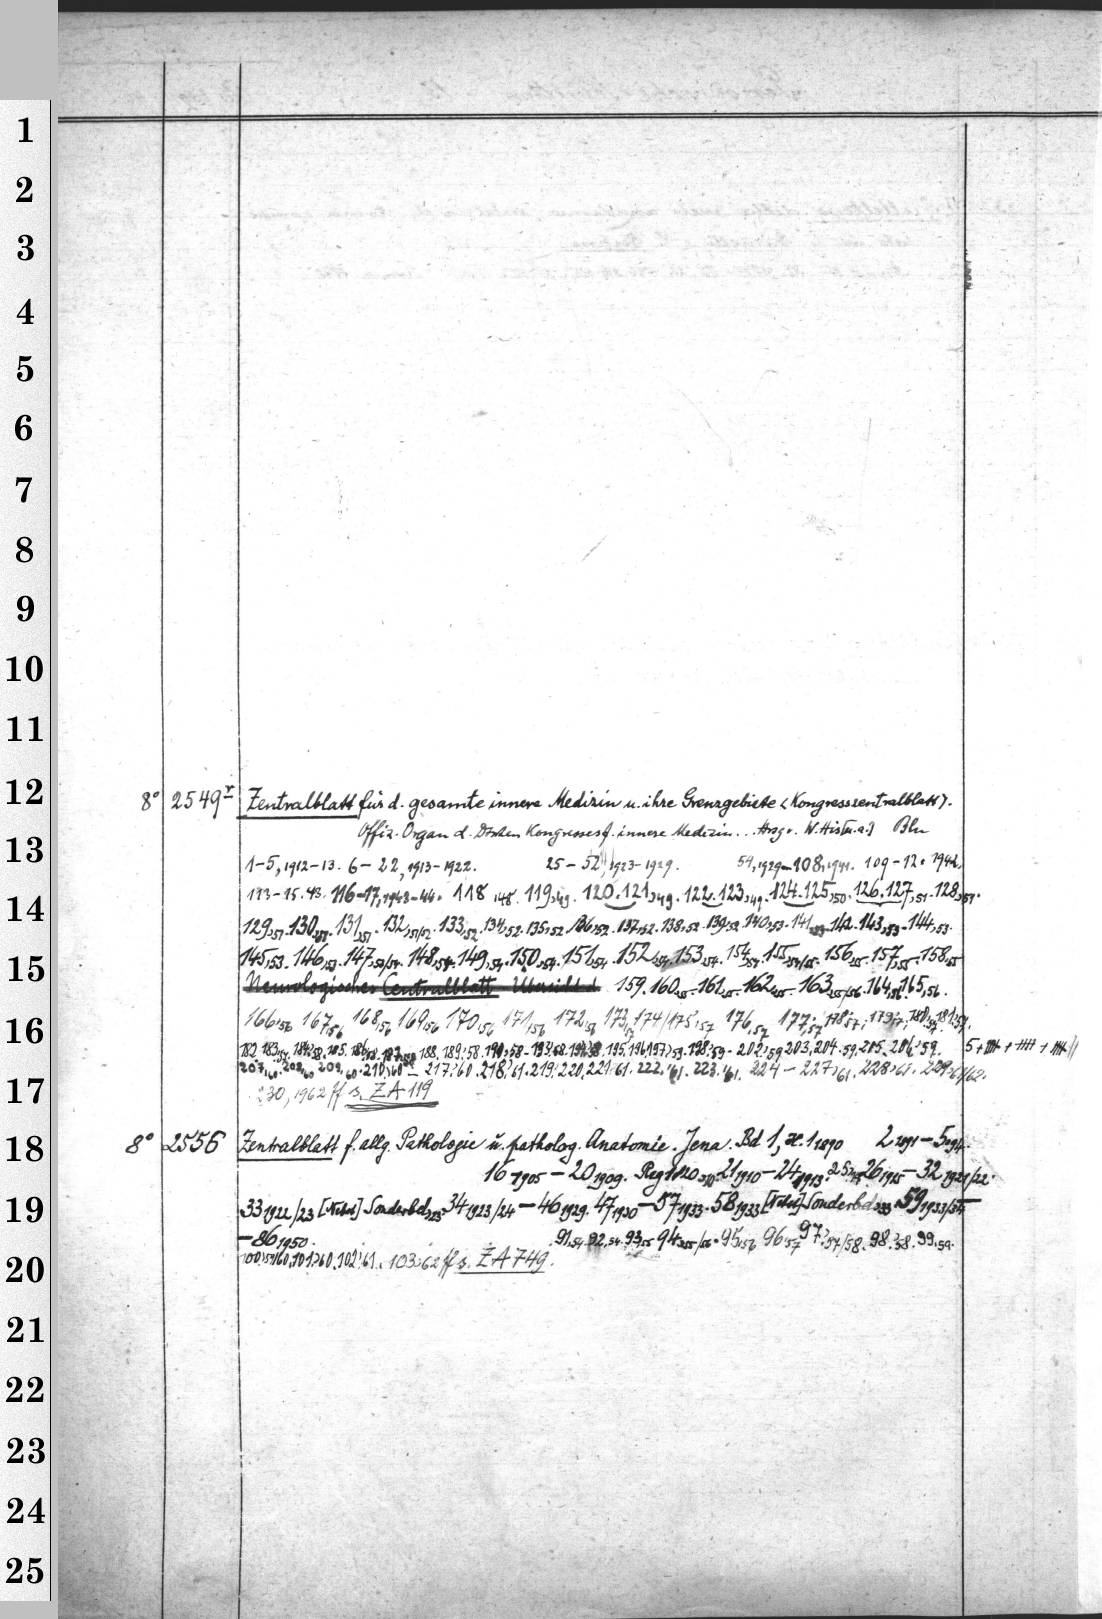 1
2
3
4
5
6
7
8
9
10
11
12
8° 2549r Zentralblatt für d. gesamte innere Medizin u. ihre Grenzgebiete <Kongresszentralblatt>.
Offiz. Organ d. Dtschen Kongresses f. innere Medizin... Hrsg. v. W. His [u.a.] Bln
13
1-5, 1912-13. 6-22, 1913-1922. 25-52, 1923-1929. 54, 1929-108, 1941. 109-12. 1942.
14
113-15. 43. 116-17, 1943-44. 118, 48. 119,49. 120.121,49. 122.123,49. 124.125,50. 126.127,51. 128,51.
129,51. 130,51. 131,51. 132,51/52. 133,52. 134,52. 135,52. 136,52. 137,52. 138,52. 139,52. 140,53. 141,53. 142. 143,53. 144,53.
15
145,53. 146,53. 147,53/54. 148,54. 149,54. 150,54. 151,54. 152,54. 153,54. 154,54. 155,54/55. 156,55. 157,55. 158,55
Neurologisches Centralblatt Übersicht d 159. 160,55. 161,55. 162,55. 163,55/56. 164,56. 165,56.
16
166,56 167,56 168,56 169,56 170,56 171,56 172,56 173,57 174/175,57 176,57 177,57 178,57; 179,57; 180,57. 181,57.
182. 183,57. 184,58. 185. 186,58. 187,58. 188. 189,58. 190,58-193,58. 194,58. 195. 196. 197,59. 198,59-202,59 203, 204,59. 205. 206,59.
17
207,60. 208,60 209,60. 210,60 - 217,60. 218,61. 219. 220. 221,61. 222,61. 223,61. 224-227,61. 228,61. 229,61/62.
230, 1962 ff s. ZA 119
18
8° 2556 Zentralblatt f. allg. Pathologie u. patholog. Anatomie. Jena. Bd 1, H. 1 1890 2 1891-5 94.
16 1905-20 1909. Reg 1-20 21 1910-24 1913. 25 26 1915-32 1921/22.
19
33 1922/23 [Nebst] Sonderbd 34 1923/24-46 1929. 47 1930-57 1933. 58 1933 [Nebst] Sonderbd 59 1933/34
-86 1950. 91,54. 92,54. 93,55 94,55/56. 95,56 96,57 97,57/58. 98,58. 99,59.
20
100,59/60. 101,60. 102,61. 103,62 ff s. ZA 749.
21
22
23
24
25